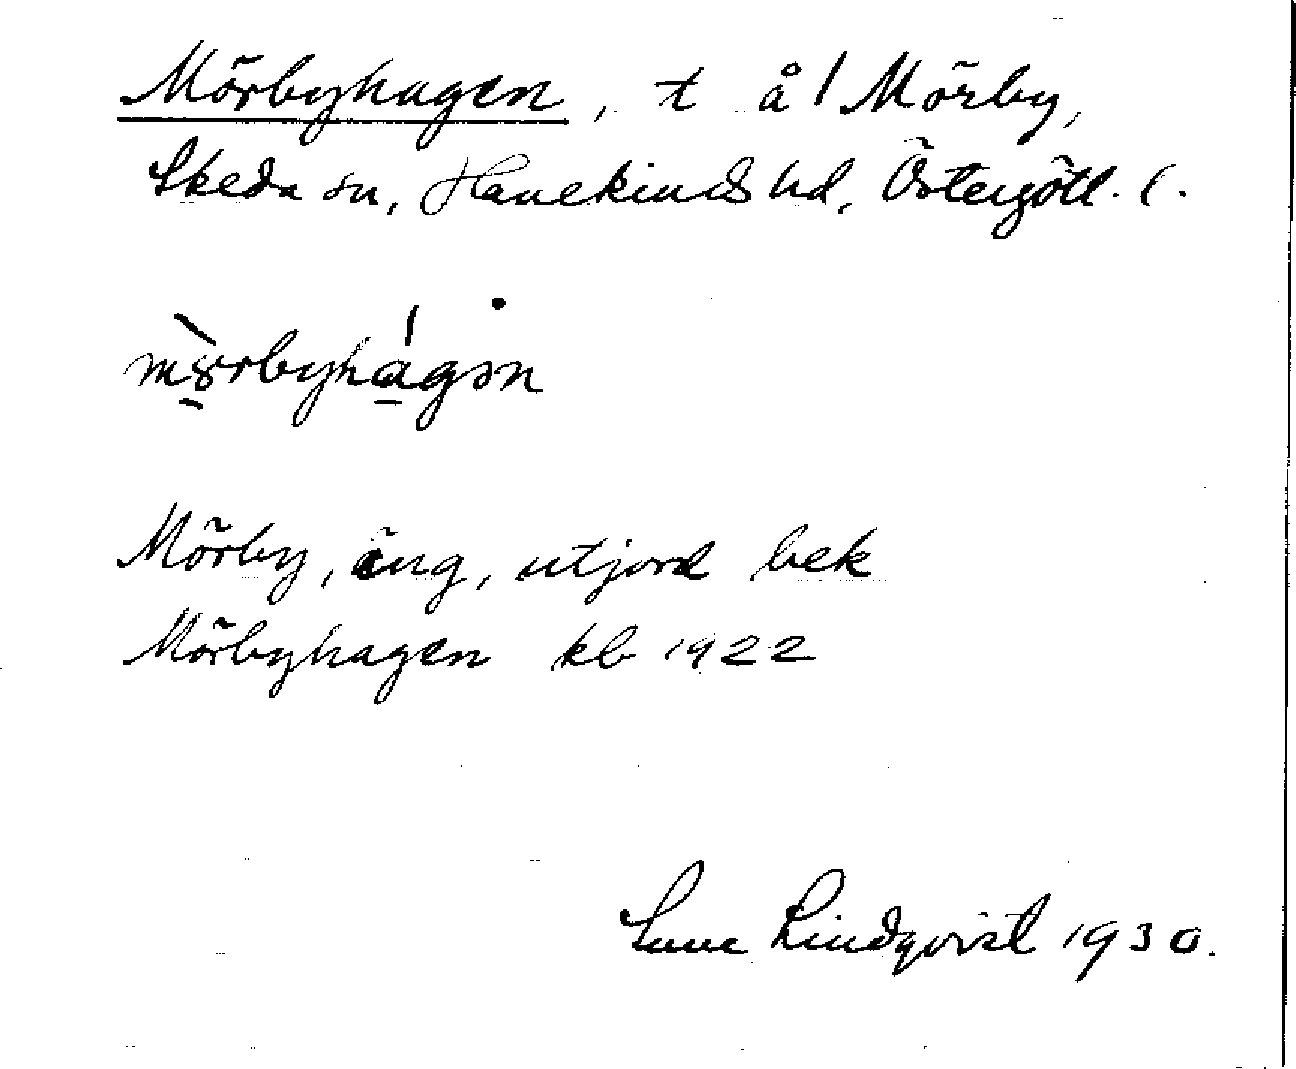 Mörbyhagen, t å 1 Mörby,
Skeda sn, Hanekinds hd, Östergötl. l.
mörbyhagən
Mörby, äng, utjord bek
Mörbyhagen kb 1922
Sune Lindqvist 1930.